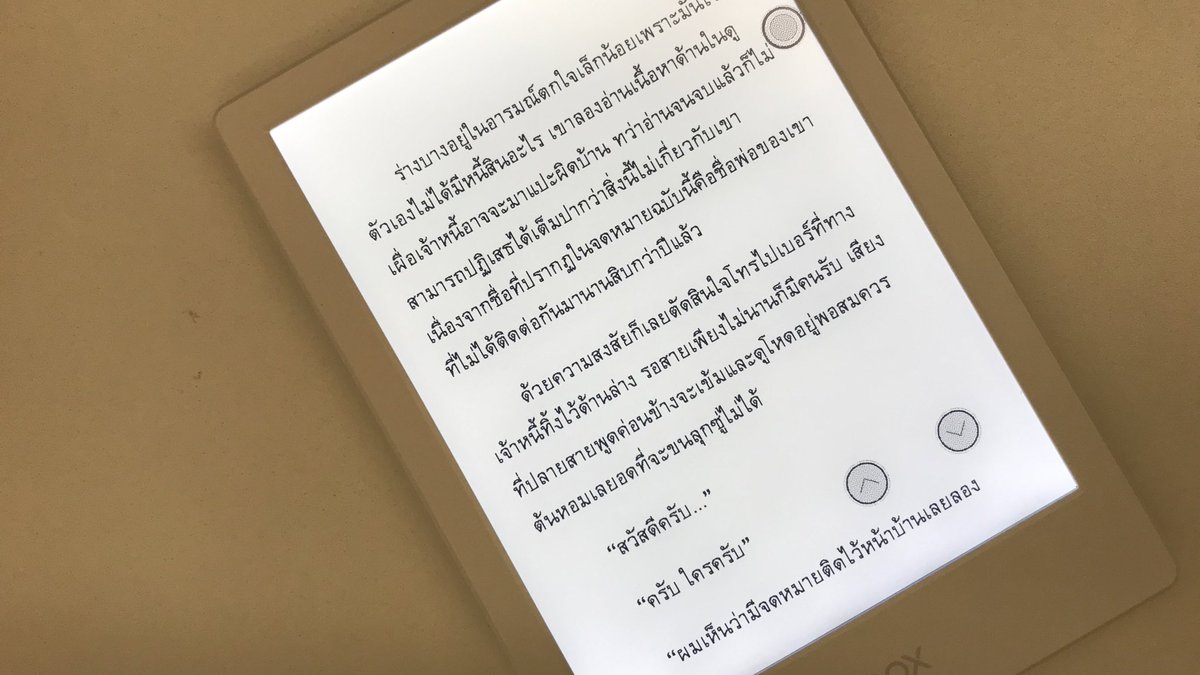 ร่างบางอยู่ในอารมณ์ตกใจเล็กน้อยเพราะมัน
ตัวเองไม่ได้มีหนี้สินอะไร เขาลองอ่านเนื้อหาด้านในดู
เผื่อเจ้าหนี้อาจจะมาแปะผิดบ้าน ทว่าอ่านจนจบแล้วก็ไม่
สามารถปฏิเสธได้เต็มปากว่าสิ่งนี้ไม่เกี่ยวกับเขา
เนื่องจากชื่อที่ปรากฏในจดหมายฉบับนี้คือชื่อพ่อของเขา
ที่ไม่ได้ติดต่อกันมานานสิบกว่าปีแล้ว
ด้วยความสงสัยก็เลยตัดสินใจโทรไปเบอร์ที่ทาง
เจ้าหนี้ทิ้งไว้ด้านล่าง รอสายเพียงไม่นานก็มีคนรับ เสียง
ที่ปลายสายพูดค่อนข้างจะเข้มและดูโหดอยู่พอสมควร
ต้นหอมเลยอดที่จะขนลุกซู่ไม่ได้
“สวัสดีครับ...”
“ครับ ใครครับ”
“ผมเห็นว่ามีจดหมายติดไว้หน้าบ้านเลยลอง